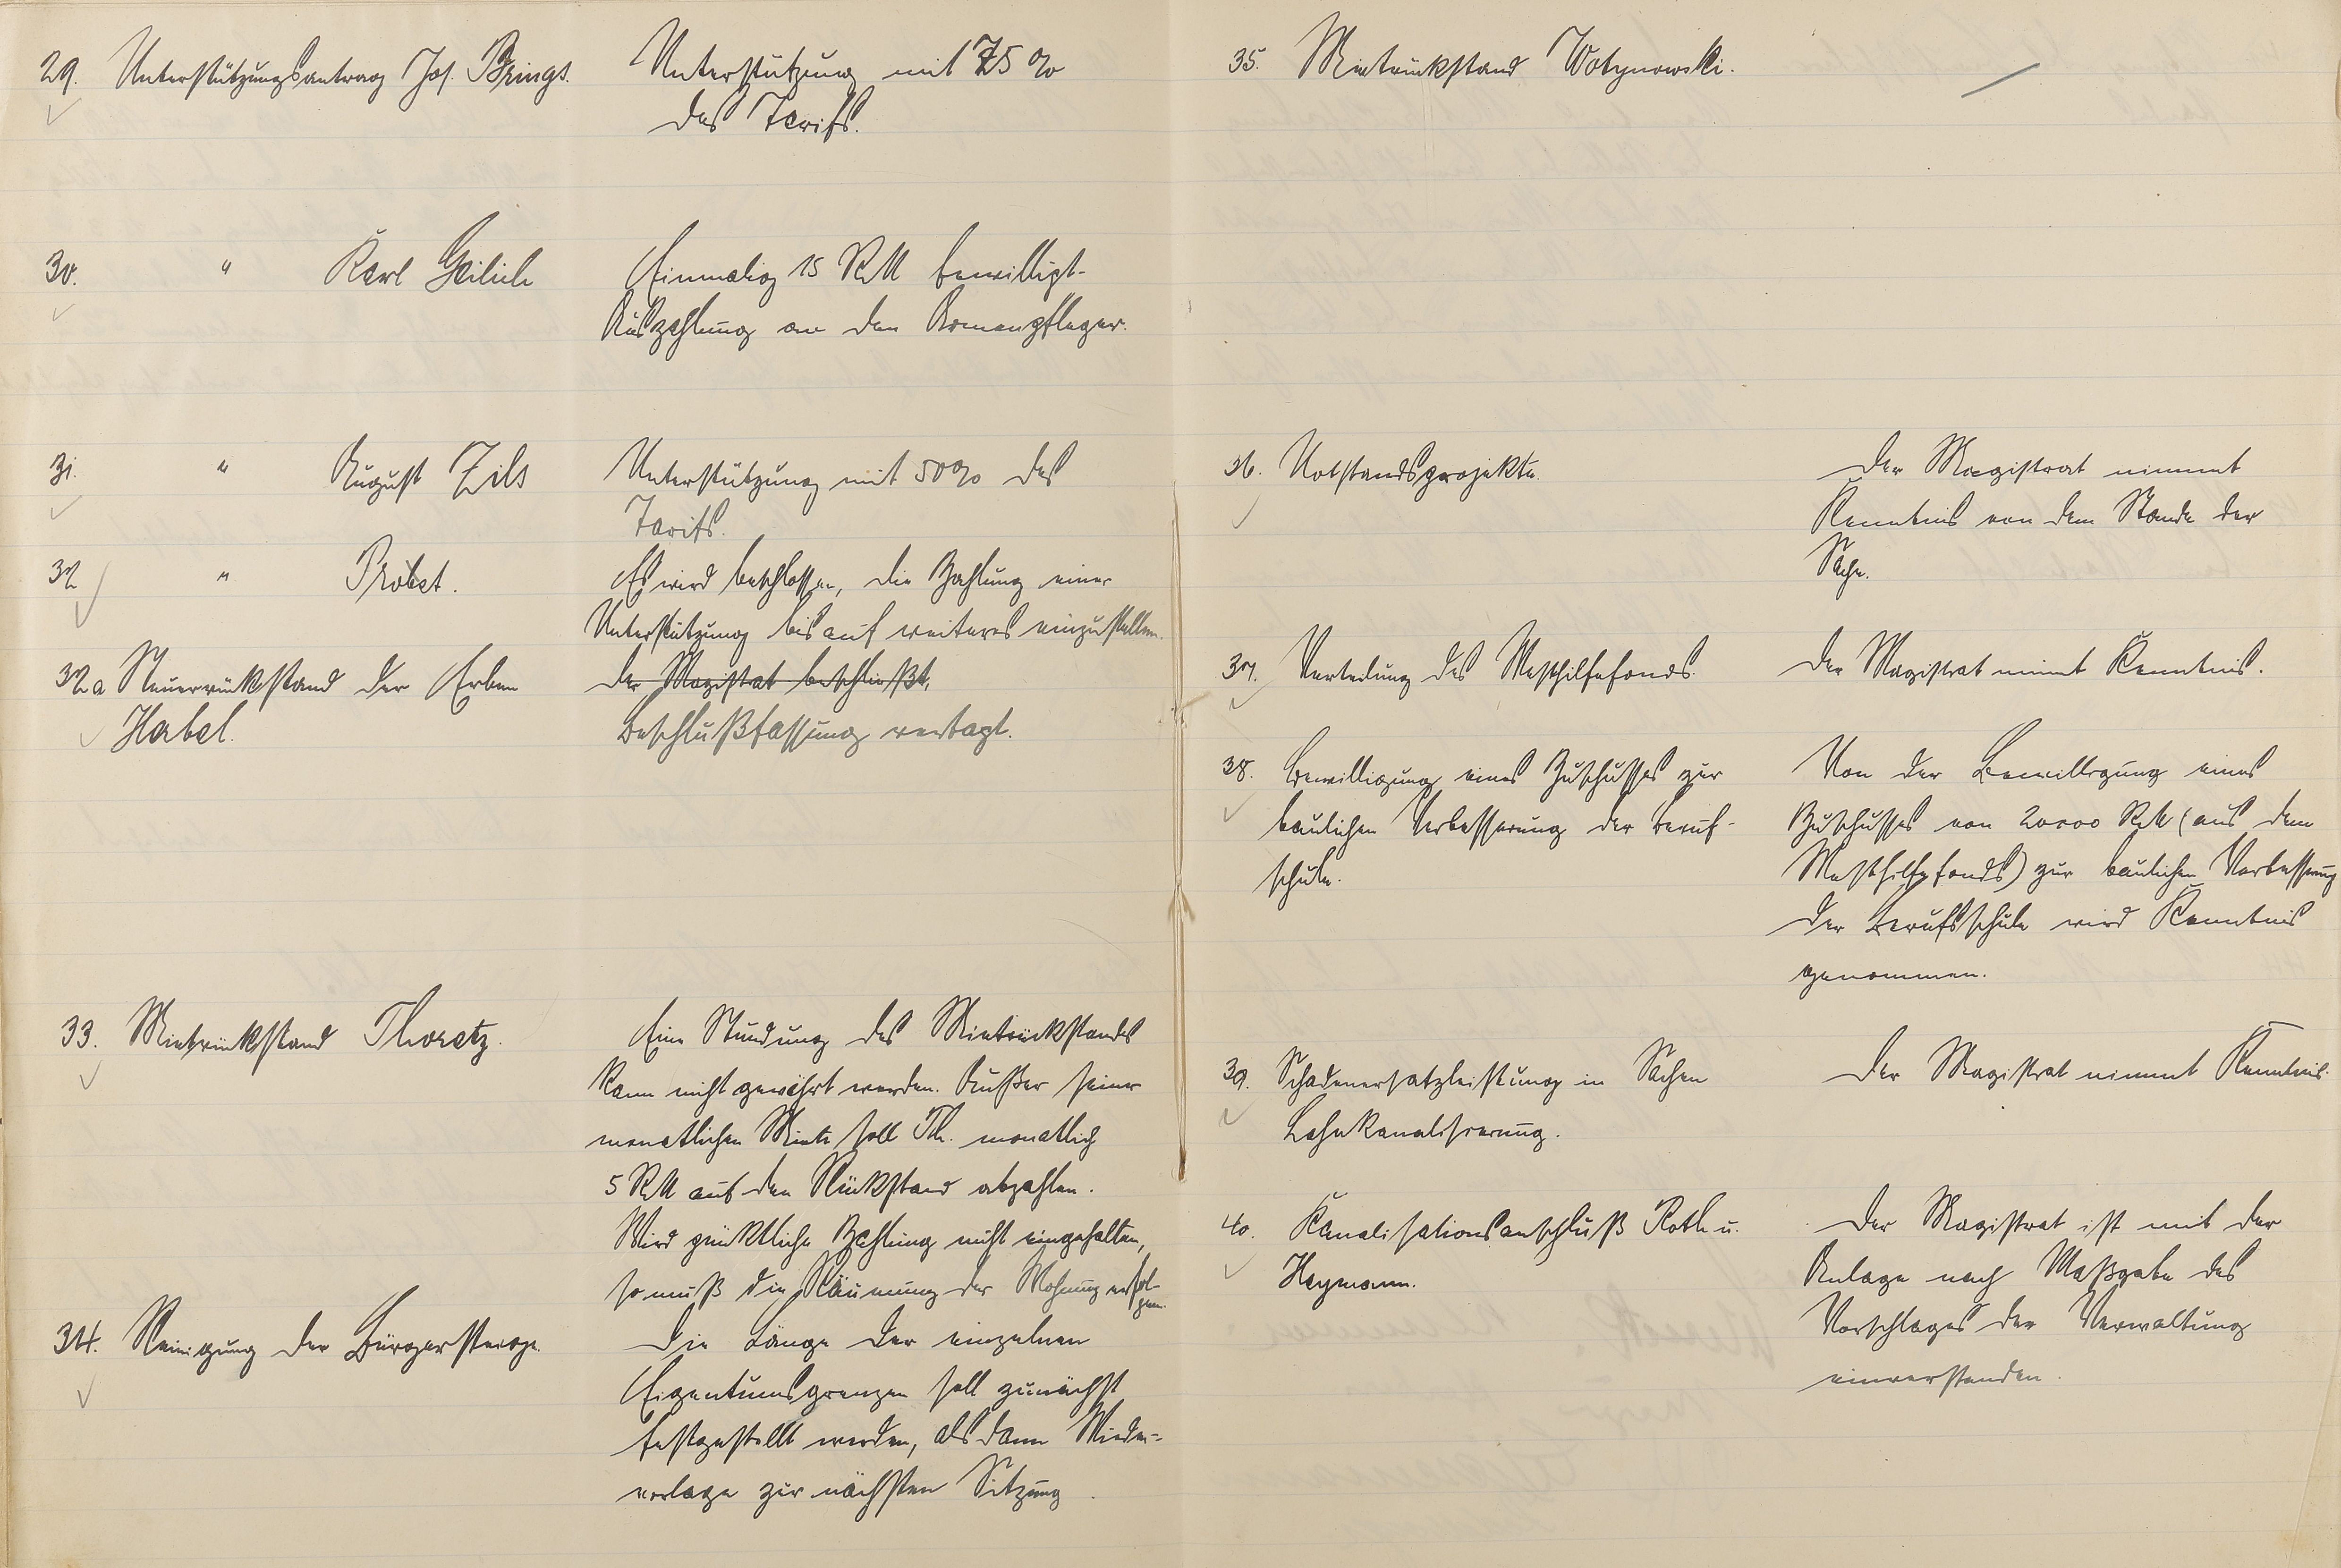 29. Unterstützungsantrag Jos. Brings.
Unterstützung mit 75 %
des Tarifs.
30. " Karl Geilich
Einmalig 15 RM bewilligt.
Auszahlung an den Armenpfleger.
31. " August Zils
Unterstützung mit 50% des
Tarifs.
32 " Probst.
Es wird beschlossen, die Zahlung einer
Unterstützung bis auf weiteres einzustellen.
32a Steuerrückstand der Erben
Habel.
der Magistrat beschließt,
Beschlußfassung vertagt.
33. Mietrückstand Thoretz.
Eine Stundung des Mietrückstandes
kann nicht gewährt werden. Außer seiner
monatlichen Miete soll Th. monatlich
5 RM auf den Rückstand abzahlen.
Wird pünktliche Zahlung nicht eingehalten,
so muß die Räumung der Wohnung erfol-
gen.
34. Reinigung der Bürgersteige.
Die Länge der einzelnen
Eigentumsgrenzen soll zunächst
festgestellt werden, alsdann Wieder-
vorlage zur nächsten Sitzung.
35. Mietrückstand Wotynowski.
36. Notstandsprojekte.
Der Magistrat nimmt
Kenntnis von dem Stande der
Sache.
37. Verteilung des Westhilfefonds.
Der Magistrat nimmt Kenntnis.
38. Bewilligung eines Zuschusses zur
baulichen Verbesserung der Beruf-
schule.
Von der Bewilligung eines
Zuschusses von 20000 RM (aus dem
Westhilfefonds) zur baulichen Verbesserung
der Berufsschule wird Kenntnis
genommen.
39. Schadenersatzleistung in Sachen
Lahnkanalisierung.
Der Magistrat nimmt Kenntnis.
40. Kanalisationsanschluß Roth u.
Heymann.
Der Magistrat ist mit der
Anlage nach Maßgabe des
Vorschlages der Verwaltung
einverstanden.